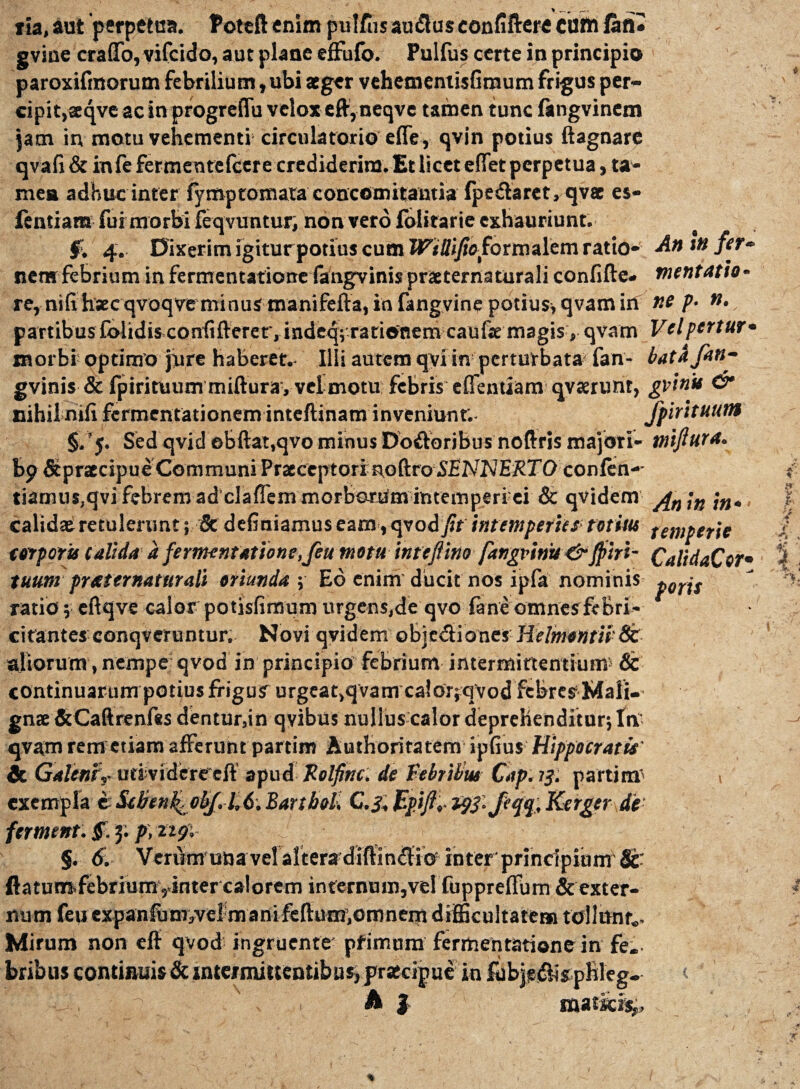 ria, aut perpetua. Potest enim pulsus auctus consistere cum san-
gvine crasso, viscido, aut plane effuso. Pulsus certe in principio
paroxismorum febrilium, ubi æger vehementissimum frigus per-
cipit, æqve ac in progressu velox est, neqve tamen tunc sangvinem
jam in motu vehementi circulatorio esse, qvin potius stagnare
qvasi & in se fermentescere crediderim. Et licet esset perpetua, ta-
men adhuc inter symptomata concomitantia spectaret, qvæ es-
sentiam sui morbi seqvuntur, non verò solitarie exhauriunt.
§. 4. Dixerim igitur potius cum Willisio, formalem ratio-
nem febrium in fermentatione sangvinis præternaturali consiste-
re, nisi hæc qvoqve minus manifesta, in sangvine potius, qvam in
partibus solidis consisteret, indeq; rationem causæ magis, qvam
morbi optimo jure haberet. Illi autem qvi in perturbata san-
gvinis & spirituum mistura, vel motu febris essentiam qværunt,
nihil nisi fermentationem intestinam inveniunt.
An in fer-
mentatio-
ne p. n.
Vel pertur-
batâ san-
gvinis &
spirituum
misturâ.
§. 5. Sed qvid obstat, qvo minus Doctoribus nostris majori-
bꝰ & præcipuè Communi Præceptori nostro SENNERTO consen-
tiamus, qvi febrem ad classem morborum intemperiei & qvidem
calidæ retulerunt; & definiamus eam, qvod sit intemperies totius
corporis calida à fermentatione, seu motu intestino sangvinis & spiri-
tuum præternaturali oriunda; Eò enim ducit nos ipsa nominis
ratio; estqve calor potissimum urgens, de qvo sanè omnes febri-
citantes conqveruntur. Novi qvidem objectiones Helmontii &
aliorum, nempe qvod in principio febrium intermittentium &
continuarum potius frigus urgeat, qvam calor, qvod febres Mali-
gnæ & Castrenses dentur, in qvibus nullus calor deprehenditur; In
qvam rem etiam afferunt partim Authoritatem ipsius Hippocratis
& Galeni, uti videre est apud Rolfinc. de Febribus Cap. 13. partim
exempla è Schenk obs. l. 6. Barthol. C. 3. Epist. 293. seqq. Kerger de
ferment. §. 3. p. 219.
An in in-
temperie
Calida Cor-
poris
§. 6. Verùm una vel altera distinctio inter principium &
statum febrium, inter calorem internum, vel suppressum & exter-
num seu expansum, vel manifestum, omnem difficultatem tollunt.
Mirum non est qvod ingruente primùm fermentatione in fe-
bribus continuis & intermittentibus, præcipuè in subjectis phleg-
A 3
maticis,